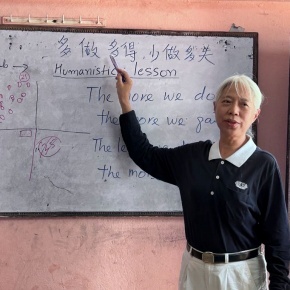 多做多得, 少做多失
Humanistic lesson
The more we do
the more we
The
the